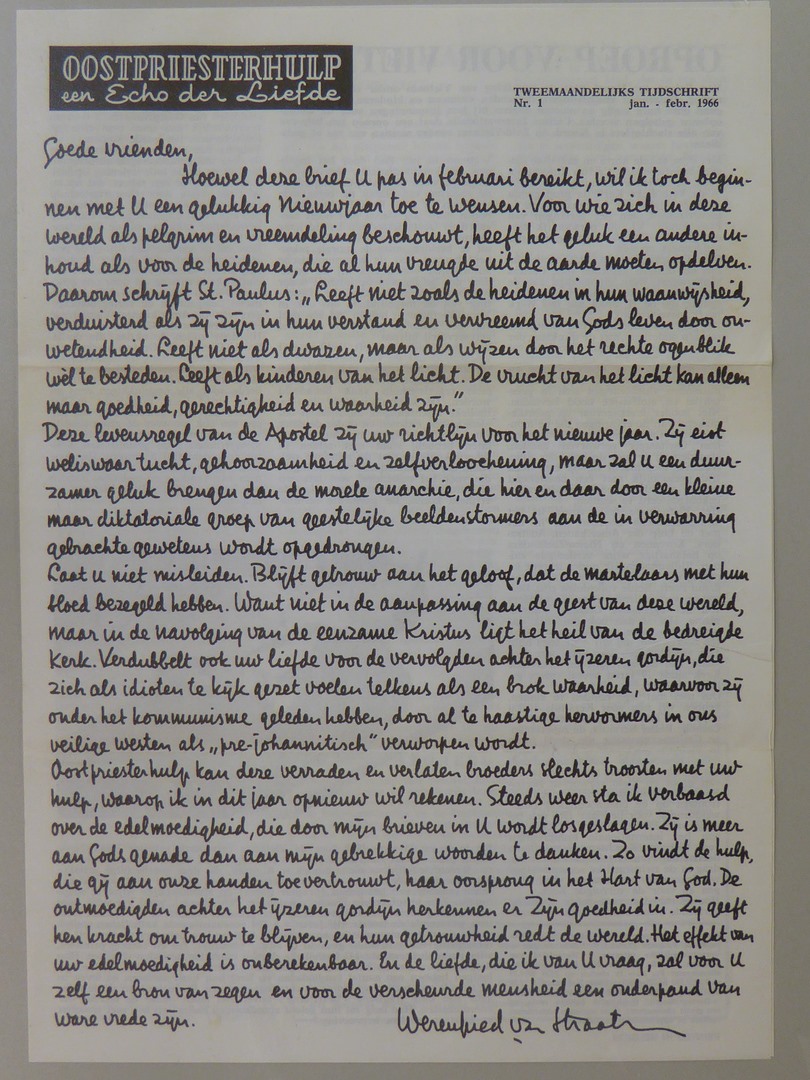 OOSTPRIESTERHULP
een Echo der Liefde
TWEEMAANDELIJKS TIJDSCHRIFT
Nr. 1 jan. - febr. 1966
Goede vrienden,
Hoewel deze brief U pas in februari bereikt, wil ik toch begin-
nen met U een gelukkig Nieuwjaar toe te wensen. Voor wie zich in deze
wereld als pelgrim en vreemdeling beschouwt, heeft het geluk een andere in-
houd als voor de heidenen, die al hun vreugde uit de aarde moeten opdelven.
Daarom schrijft St. Paulus: „Leeft niet zoals de heidenen in hun waanwijsheid,
verduisterd als zij zijn in hun verstand en vervreemd van Gods leven door on-
wetendheid. Leeft niet als dwazen, maar als wijzen door het rechte ogenblik
wèl te besteden. Leeft als kinderen van het licht. De vrucht van het licht kan alleen
maar goedheid, gerechtigheid en waarheid zijn."
Deze levensregel van de Apostel zij uw richtlijn voor het nieuwe jaar. Zij eist
weliswaar tucht, gehoorzaamheid en zelfverloochening, maar zal U een duur-
zamer geluk brengen dan de morele anarchie, die hier en daar door een kleine
maar diktatoriale groep van geestelijke beeldenstormers aan de in verwarring
gebrachte gewetens wordt opgedrongen.
Laat U niet misleiden. Blijft getrouw aan het geloof, dat de martelaars met hun
bloed bezegeld hebben. Want niet in de aanpassing aan de geest van deze wereld,
maar in de navolging van de eenzame Kristus ligt het heil van de bedreigde
Kerk. Verdubbelt ook uw liefde voor de vervolgden achter het ijzeren gordijn, die
zich als idioten te kijk gezet voelen telkens als een brok waarheid, waarvoor zij
onder het kommunisme geleden hebben, door al te haastige hervormers in ons
veilige westen als „pre-johannitisch" verworpen wordt.
Oostpriesterhulp kan deze verraden en verlaten broeders slechts troosten met uw
hulp, waarop ik in dit jaar opnieuw wil rekenen. Steeds weer sta ik verbaasd
over de edelmoedigheid, die door mijn brieven in U wordt losgeslagen. Zij is meer
aan Gods genade dan aan mijn gebrekkige woorden te danken. Zo vindt de hulp,
die gij aan onze handen toevertrouwt, haar oorsprong in het Hart van God. De
ontmoedigden achter het ijzeren gordijn herkennen er Zijn goedheid in. Zij geeft
hen kracht om trouw te blijven, en hun getrouwheid redt de wereld. Het effekt van
uw edelmoedigheid is onberekenbaar. En de liefde, die ik van U vraag, zal voor U
zelf een bron van zegen en voor de verscheurde mensheid een onderpand van
ware vrede zijn.
Werenfried van Straaten